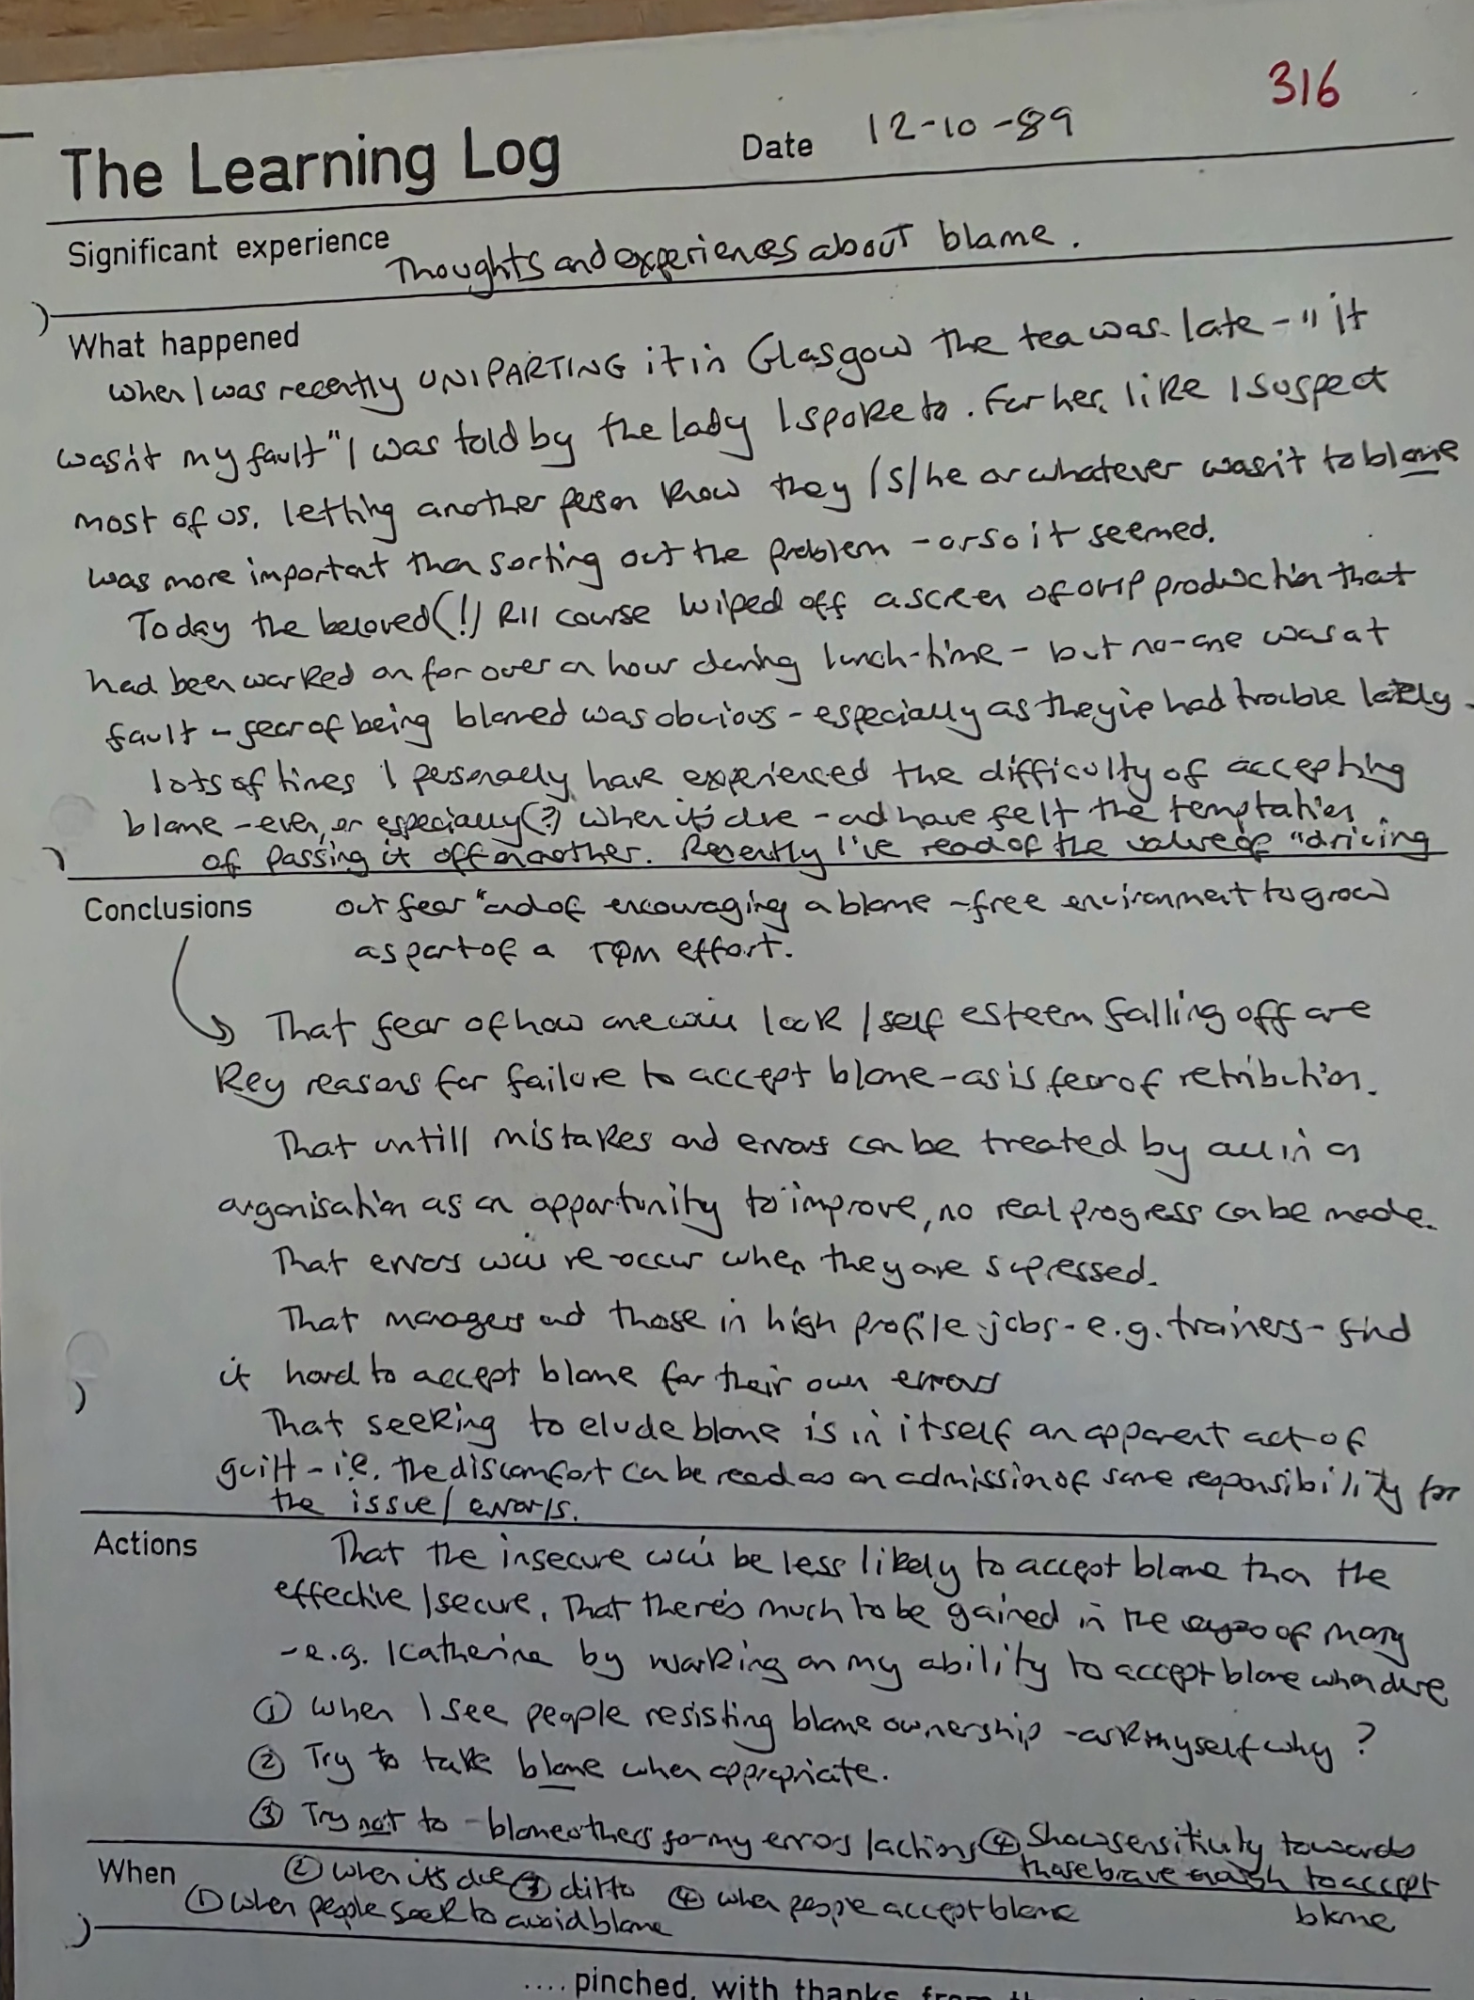 316
The Learning Log
Date 12-10-89
Significant experience Thoughts and experiences about blame.
What happened
When I was recently UNIPARTING it in Glasgow the tea was late - "it
wasn't my fault" I was told by the lady I spoke to. For her, like I suspect
most of us, letting another person know they /s/he or whatever wasn't to blame
was more important than sorting out the problem - or so it seemed.
Today the beloved (!) R11 course wiped off a screen of OHP production that
had been worked on for over an hour during lunch-time - but no-one was at
fault - fear of being blamed was obvious - especially as they've had trouble lately.
Lots of times I personally have experienced the difficulty of accepting
blame - even, or especially (?) when it's due - and have felt the temptation
of passing it off on another. Recently I've read of the value of "driving
Conclusions out fear" and of encouraging a blame-free environment to grow
as part of a TQM effort.
That fear of how one will look / self esteem falling off are
key reasons for failure to accept blame - as is fear of retribution.
That untill mistakes and errors can be treated by all in an
organisation as an opportunity to improve, no real progress can be made.
That errors will re-occur when they are supressed.
That managers and those in high profile jobs - e.g. trainers - find
it hard to accept blame for their own errors
That seeking to elude blame is in itself an apparent act of
guilt - i.e. the discomfort can be read as an admission of some responsibility for
the issue/error/s.
Actions That the insecure will be less likely to accept blame than the
effective / secure. That there's much to be gained in the eyes of many
- e.g. Katherine by working on my ability to accept blame when due
① When I see people resisting blame ownership - ask myself why?
② Try to take blame when appropriate.
③ Try not to - blame others for my errors / actions ④ Show sensitivity towards
those brave enough to accept
blame
When ② when it's due ③ ditto
① when people seek to avoid blame ④ when people accept blame
.... pinched, with thanks from